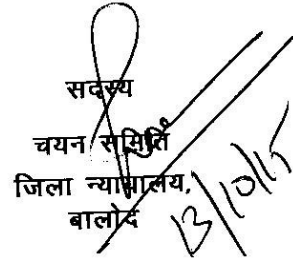 सदस्य
चयन समिति
जिला न्यायालय,
बालोद
13/10/15